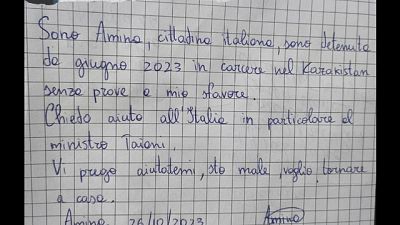 Sono Amina, cittadina italiana, sono detenuta
da giugno 2023 in carcere nel Kazakistan
senza prove a mio sfavore.
Chiedo aiuto all'Italia in particolare al
ministro Taiani.
Vi prego aiutatemi, sto male, voglio tornare
a casa.
Amina 26/10/2023 Amina